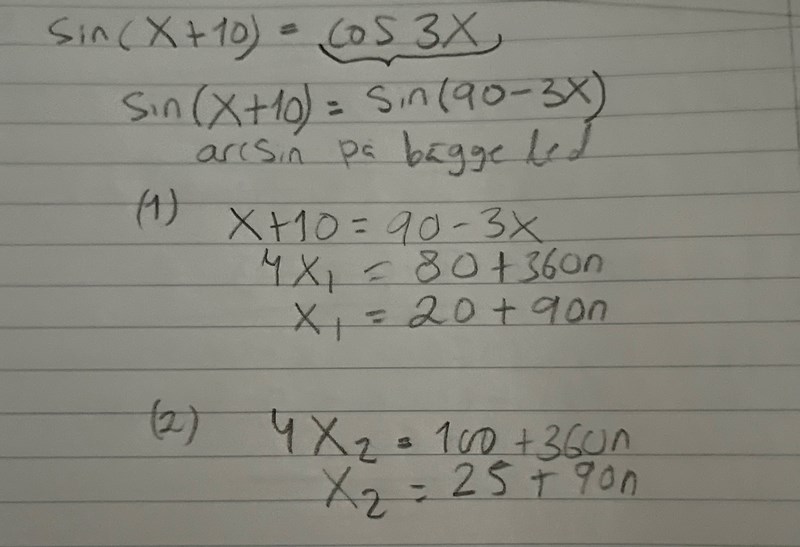 sin(x+10) = cos 3x
sin(x+10) = sin(90-3x)
arcsin på bägge led
(1) x+10 = 90-3x
4x₁ = 80+360n
x₁ = 20+90n
(2) 4x₂ = 100+360n
x₂ = 25+90n